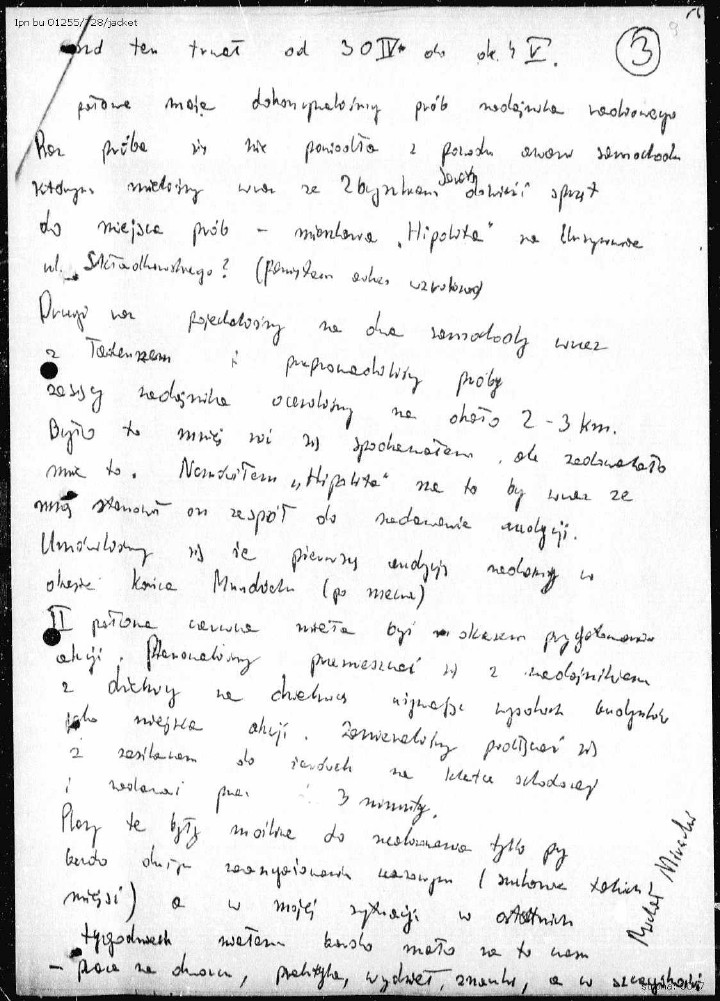 Ipn bu 01255/728/jacket
9
3
ten trwał od 30 IV do ok. 4 V.
połowa maja dokonywaliśmy prób nadajnika radiowego
Raz próba się nie powiodła z powodu awarii samochodu
którym mieliśmy wraz ze Zbyszkiem dowieźć sprzęt
do miejsca prób – mieszkania „Hipolita" na Ursynowie
ul. Składkowskiego? (pamiętam adres wzrokowo)
Drugi raz pojechaliśmy na dwa samochody wraz
z Tadeuszem i przeprowadziliśmy próby
zasięg nadajnika oceniliśmy na około 2-3 km.
Było to mniej niż się spodziewałem, ale zadowalało
mnie to. Namówiłem „Hipolita" na to by wraz ze
mną stanowił on zespół do nadawania audycji.
Umówiliśmy się że pierwszą audycję nadamy w
okresie końca Mundialu (po meczu)
II połowa czerwca miała być okresem przygotowania
akcji. Planowaliśmy przemieszczać się z nadajnikiem
z dzielnicy na dzielnicę wysokich budynków
jako miejsca akcji. Zamierzaliśmy podłączać się
z zasilaniem do na klatce schodowej
i nadawać przez 3 minuty.
Plany te były możliwe do zrealizowania tylko przy
bardzo dużym zaangażowaniu czasowym (szukanie takich
miejsc) a w mojej sytuacji w ostatnich
tygodniach miałem bardzo mało na to czasu
– praca na dworcu, praktyka, wydział, a w szczególności
Michał